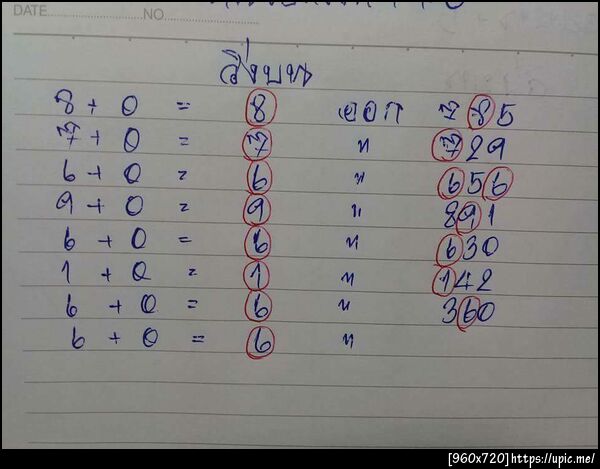 DATE NO.
วิ่งบน
8 + 0 = 8 ออก 785
7 + 0 = 7 " 729
6 + 0 = 6 " 656
9 + 0 = 9 " 891
6 + 0 = 6 " 630
1 + 0 = 1 " 142
6 + 0 = 6 " 360
6 + 0 = 6 "
[960x720]https://upic.me/